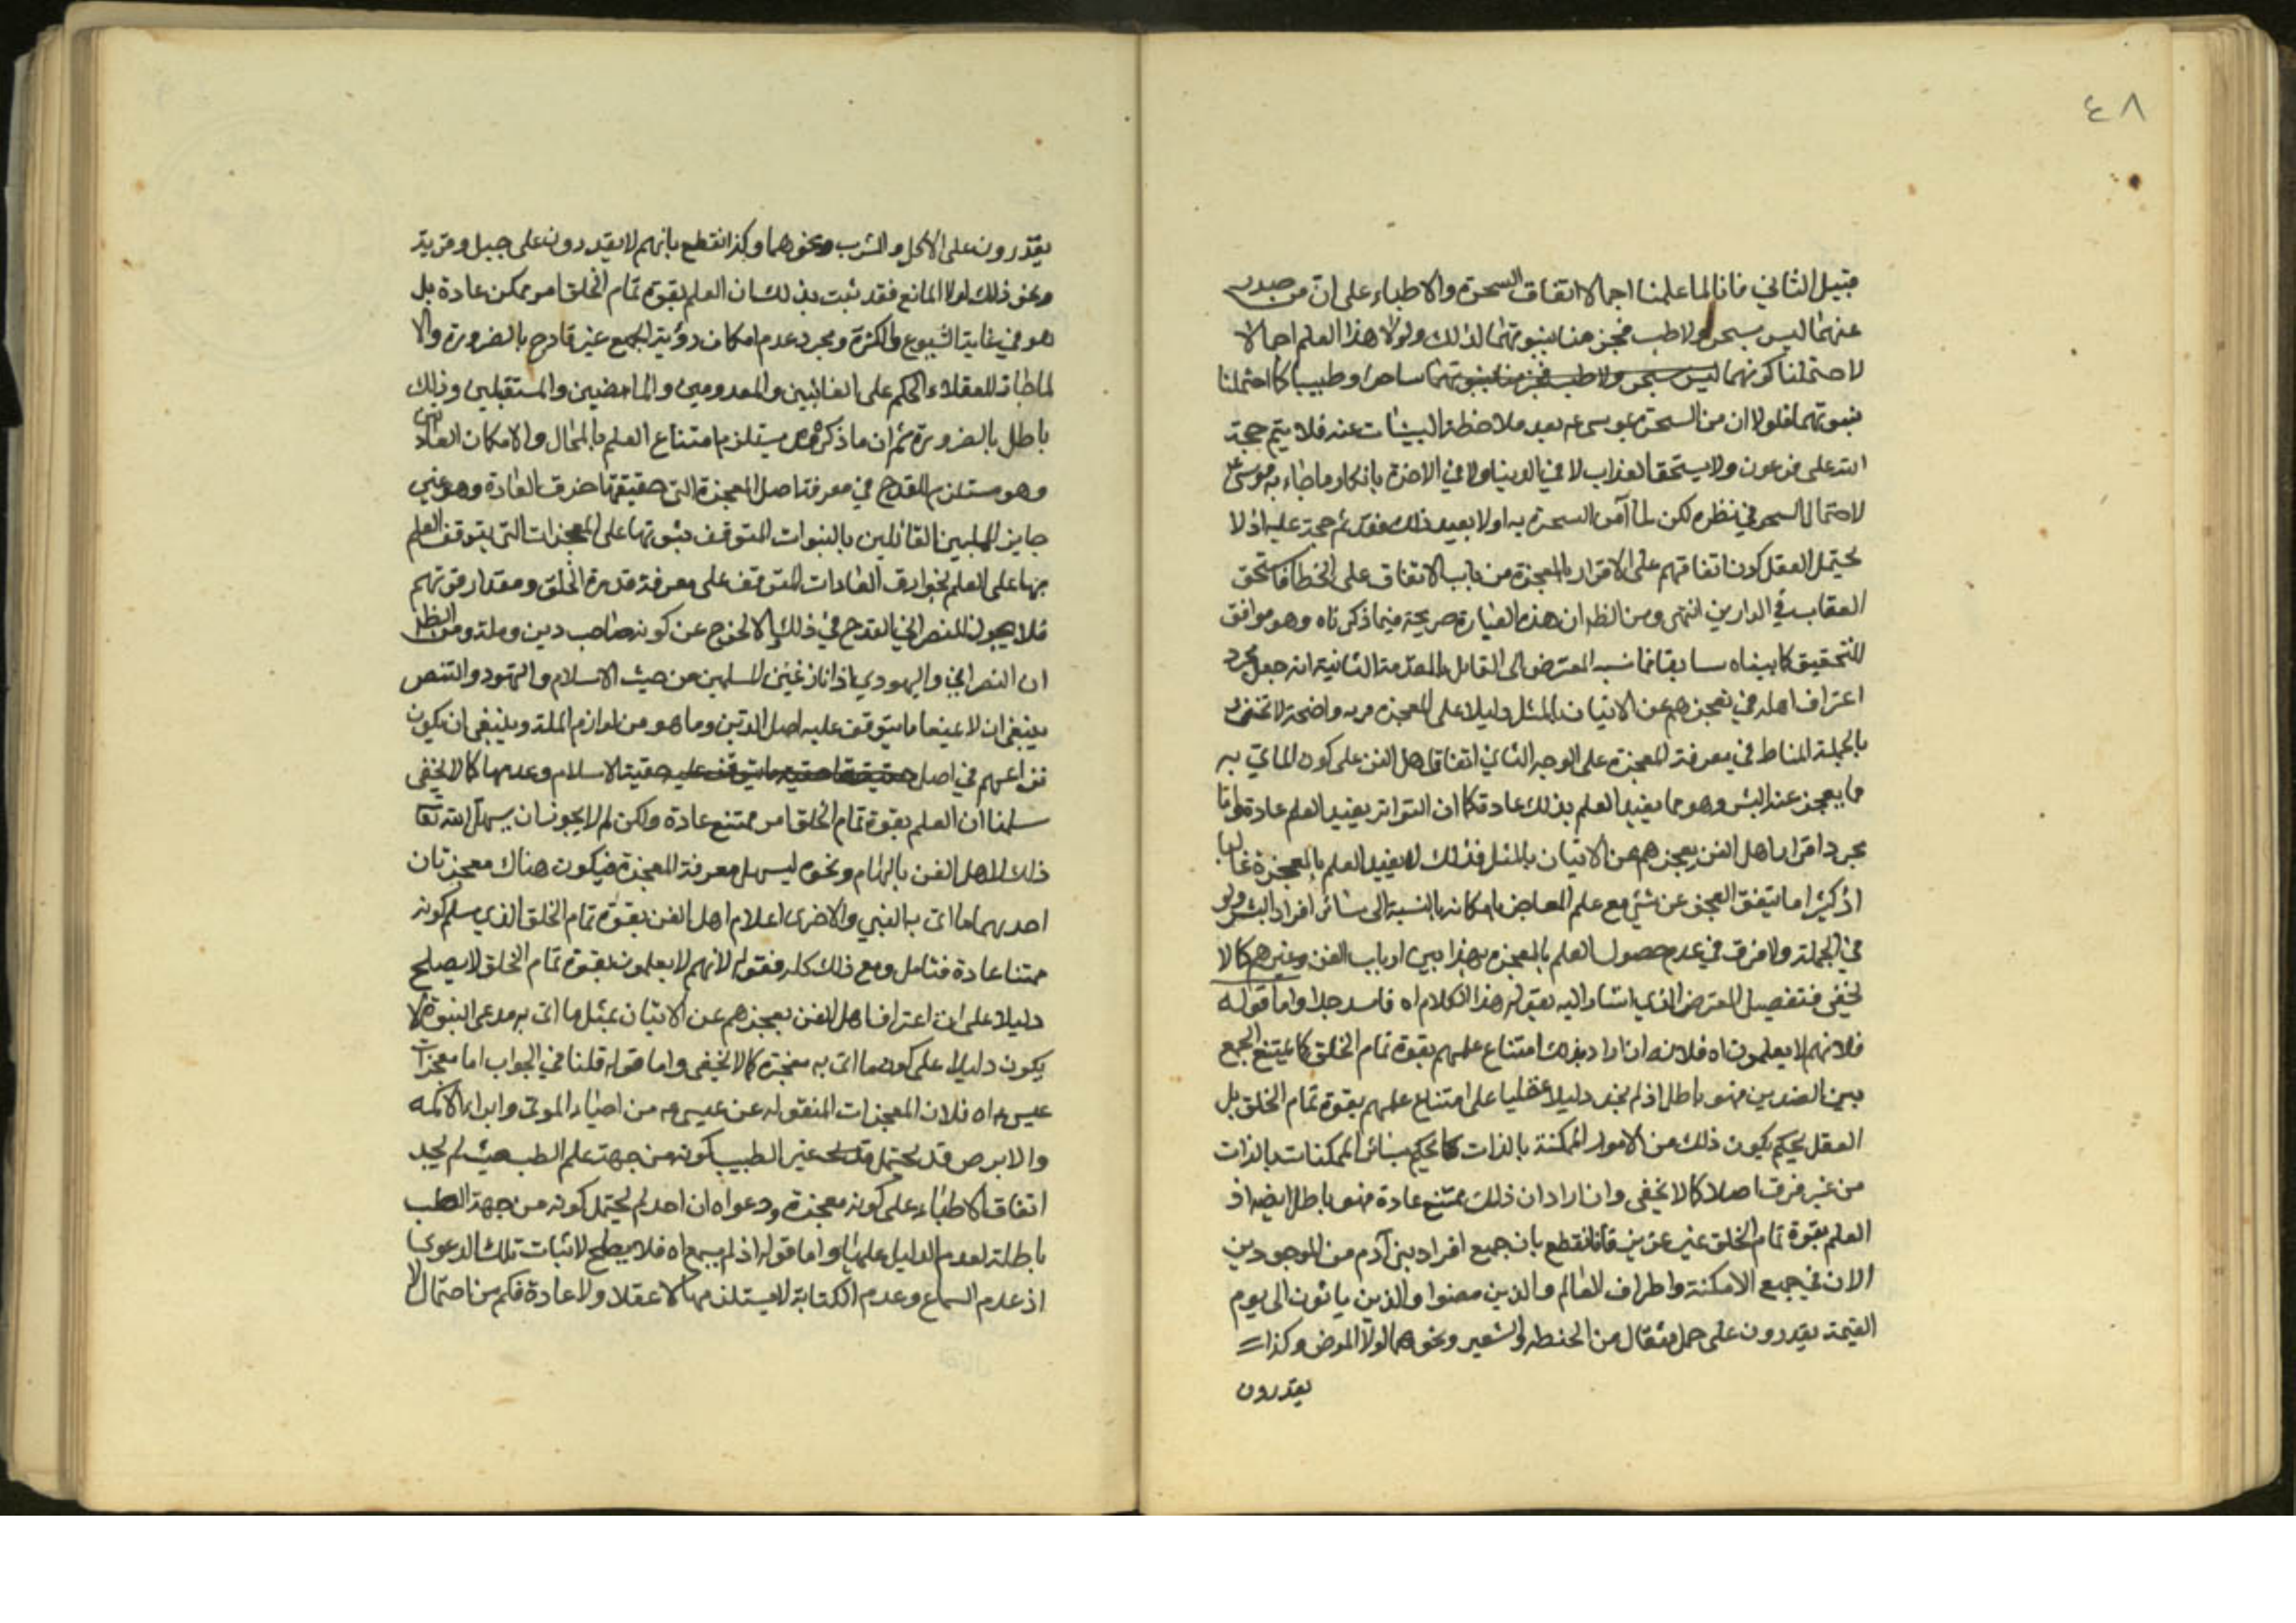 ٤٨
قبيل الثاني فانا لما علمنا اجمالا اتفاق السحرة والاطباء على ان من صدر
عنهما ليس بسحر ولا طب فجزمنا بنبوتهما لذلك ولولا هذا العلم اجمالا
لاحتملنا كونهما ليس بسحر ولا طب فجزمنا بنبوتهما ساحرا وطبيبا كما احتملنا
نبوتهما فلولا ان من السحرة بموسى ع بعد ملاحظة البينات عنه فلا يتم حجة
الله على فرعون ولا يستحق العذاب لا في الدنيا ولا في الاخرة بانكار ما جاء به موسى ع
لاحتمال السحر في نظره لكن لما آمن السحرة به اولا بعيد ذلك فقد تم حجة عليه اذ لا
يحتمل العقل كون اتفاقهم على الاقرار بالمعجزة من باب الاتفاق على الخطا فاستحق
العقاب في الدارين انتهى ومن الظ ان هذه العبارة صريحة فيما ذكرناه وهو موافق
للتحقيق كما بيناه سابقا فما نسبه المعترض الى القايل بالمقدمة الثانية انه جعل مجرد
اعتراف اهله في تعجزهم عن الاتيان بالمثل دليلا على المعجزة فرية واضحة لا تخفى و
بالجملة المناط في معرفة المعجزة على الوجه الثاني اتفاق اهل الفن على كون الماتي به
ما يعجز عنه البشر وهو مما يفيد العلم بذلك عادة كما ان التواتر يفيد العلم عادة واما
مجرد اقرار اهل الفن بعجزهم عن الاتيان بالمثل فذلك لا يفيد العلم بالمعجزة غالبا
اذ كثيرا ما يتفق العجز عن شئ مع علم العاجز بامكانه بالنسبة الى سائر افراد البشر ولو
في الجملة ولا فرق في عدم حصول العلم بالمعجزة بهذا بين ارباب الفن وغيرهم كما لا
يخفى فتفصيل المعترض الذي اشار اليه بقوله هذا الكلام اه فاسد جدا واما قوله
فلانهم لا يعلمون اه فلانه ان اراد بذلك امتناع علمهم بقوة تمام الخلق كما يمتنع الجمع
بين الضدين فهو باطل اذ لم نجد دليلا عقليا على امتناع علمهم بقوة تمام الخلق بل
العقل يحكم بكون ذلك من الامور الممكنة بالذات كما يحكم بسائر الممكنات بالذات
من غير فرق اصلا كما لا يخفى وان اراد ان ذلك ممتنع عادة فهو باطل ايضا اذ
العلم بقوة تمام الخلق غير عزيز فانا نقطع بان جميع افراد بني آدم من الموجودين
الان في جميع الامكنة واطراف العالم والذين مضوا والذين ياتون الى يوم
القيمة يقدرون على حمل مثقال من الحنطة والشعير ونحوهما لولا المرض وكذا
يقدرون
يقدرون على الاكل والشرب ونحوهما وكذا نقطع بانهم لا يقدرون على جبل وقرية
ونحو ذلك لولا المانع فقد ثبت بذلك ان العلم بقوة تمام الخلق امر ممكن عادة بل
هو في غاية الشيوع والكثرة ومجرد عدم امكان رؤية الجمع غير قادح بالضرورة والا
لما جاز للعقلاء الحكم على الغائبين والمعدومين والماضيين والمستقبلين وذلك
باطل بالضرورة ثم ان ما ذكره يستلزم امتناع العلم بالمحال والامكان العاديين
وهو مستلزم للقدح في معرفة اصل المعجزة التي حقيقتها خرق العادة وهو غير
جايز للمليين القائلين بالنبوات المتوقف ثبوتها على المعجزات التي يتوقف العلم
بها على العلم بخوارق العادات المتوقف على معرفة قدرة الخلق ومقدار قوتهم
فلا يجوز للنصراني القدح في ذلك والا لخرج عن كونه صاحب دين وملة ومن الظ
ان النصراني واليهودي اذا نازعين المسلمين من حيث الاسلام والتهود والتنصر
ينبغي ان لا يمنعا ما يتوقف عليه اصل الدين وما هو من لوازم الملة وينبغي ان يكون
نزاعهم في اصل حقيقة ما يتوقف عليه حقية الاسلام وعدمها كما لا يخفى
سلمنا ان العلم بقوة تمام الخلق امر ممتنع عادة ولكن لم لا يجوز ان يسهل الله تعا
ذلك لاهل الفن بالهام ونحوه ليسهل معرفة المعجزة فيكون هناك معجزتان
احديهما ما اتى به النبي والاخرى اعلام اهل الفن بقوة تمام الخلق الذي سلم كونه
ممتنعا عادة فتامل ومع ذلك كله فقوله لانهم لا يعلمون بقوة تمام الخلق لا يصلح
دليلا على ان اعتراف اهل الفن بعجزهم عن الاتيان بمثل ما اتى به مدعى النبوة لا
يكون دليلا على كون ما اتى به معجزة كما لا يخفى واما قوله قلنا في الجواب اما معجزات
عيسى ع اه فلان المعجزات المنقولة عن عيسى ع من احياء الموتى وابراء الاكمه
والابرص قد يحتمل غير الطبيب كونه من جهة علم الطب حيث لم يجد
اتفاق الاطباء على كونه معجزة ودعواه ان احد لم يحتمل كونه من جهة الطب
باطلة لعدم الدليل عليها واما قوله اذ لم يسمع اه فلا يصلح لاثبات تلك الدعوى
اذ عدم السماع وعدم الكتابة لا يستلزمها لا عقلا ولا عادة فكم من احتمال لا